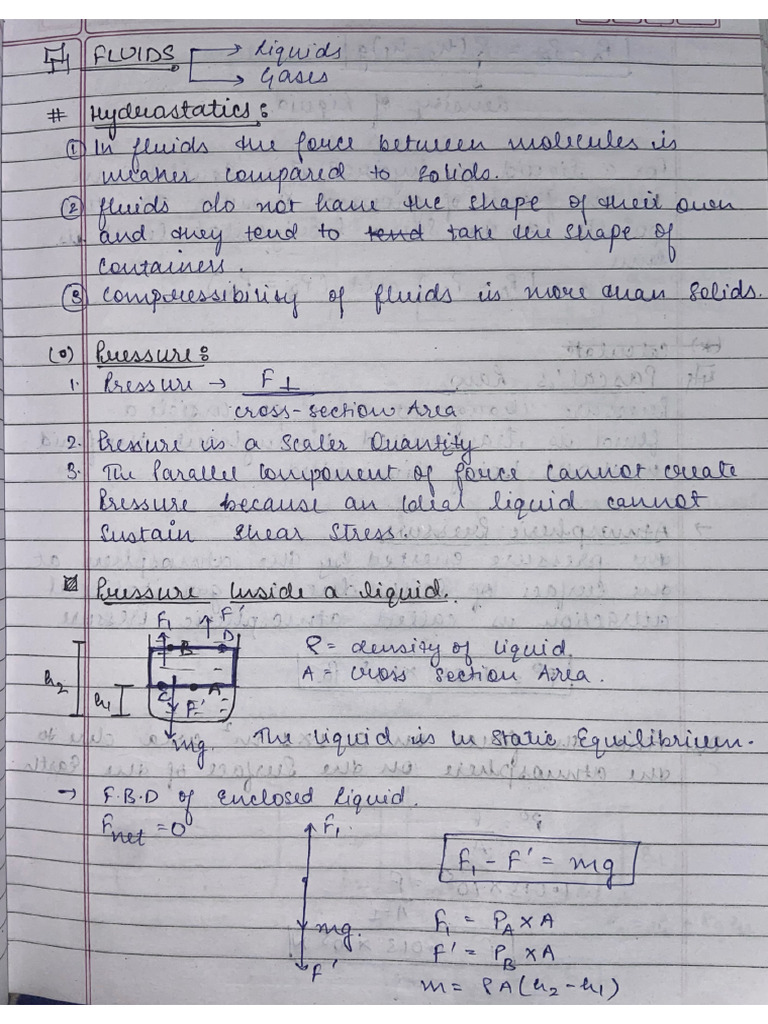 FLUIDS → Liquids
→ Gases
# Hydrostatics :
① In fluids the force between molecules is
weaker compared to solids.
② fluids do not have the shape of their own
and they tend to tend take the shape of
containers.
③ compressibility of fluids is more than solids.
(o) Pressure :
1. Pressure → F⊥
cross-section Area
2. Pressure is a Scaler Quantity
3. The Parallel component of force cannot create
Pressure because an ideal liquid cannot
Sustain Shear Stress.
Pressure Inside a liquid.
F₁ F'
B D ρ = density of liquid.
h₂ h₁ C A A = cross section Area.
F'
mg. The liquid is in static Equilibrium.
→ F.B.D of enclosed liquid.
Fnet = 0 F₁
F₁ - F' = mg
mg. F₁ = P_A × A
F' F' = P_B × A
m = ρA(h₂-h₁)